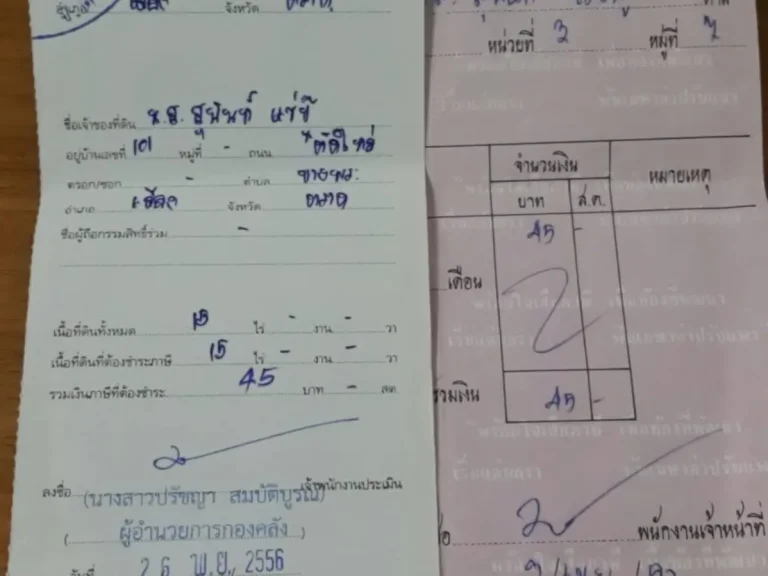 จังหวัด
ชื่อเจ้าของที่ดิน น.ส. สุพินท์ แซ่ยี่
อยู่บ้านเลขที่ 101 หมู่ที่ - ถนน
ตรอก/ซอก - ตำบล บางพระ
อำเภอ เมือง จังหวัด ตราด
ชื่อผู้ถือกรรมสิทธิ์ร่วม -
เนื้อที่ดินทั้งหมด 15 ไร่ - งาน - วา
เนื้อที่ดินที่ต้องชำระภาษี 15 ไร่ - งาน - วา
รวมเงินภาษีที่ต้องชำระ 45 บาท - สต
ลงชื่อ เจ้าพนักงานประเมิน
(นางสาวปรัชญา สมบัติบูรณ์)
ผู้อำนวยการกองคลัง
วันที่ 26 พ.ย. 2556
หน่วยที่ 3 หมู่ที่ 7
จำนวนเงิน หมายเหตุ
บาท ส.ต.
45 -
เดือน
รวมเงิน 45 -
พนักงานเจ้าหน้าที่